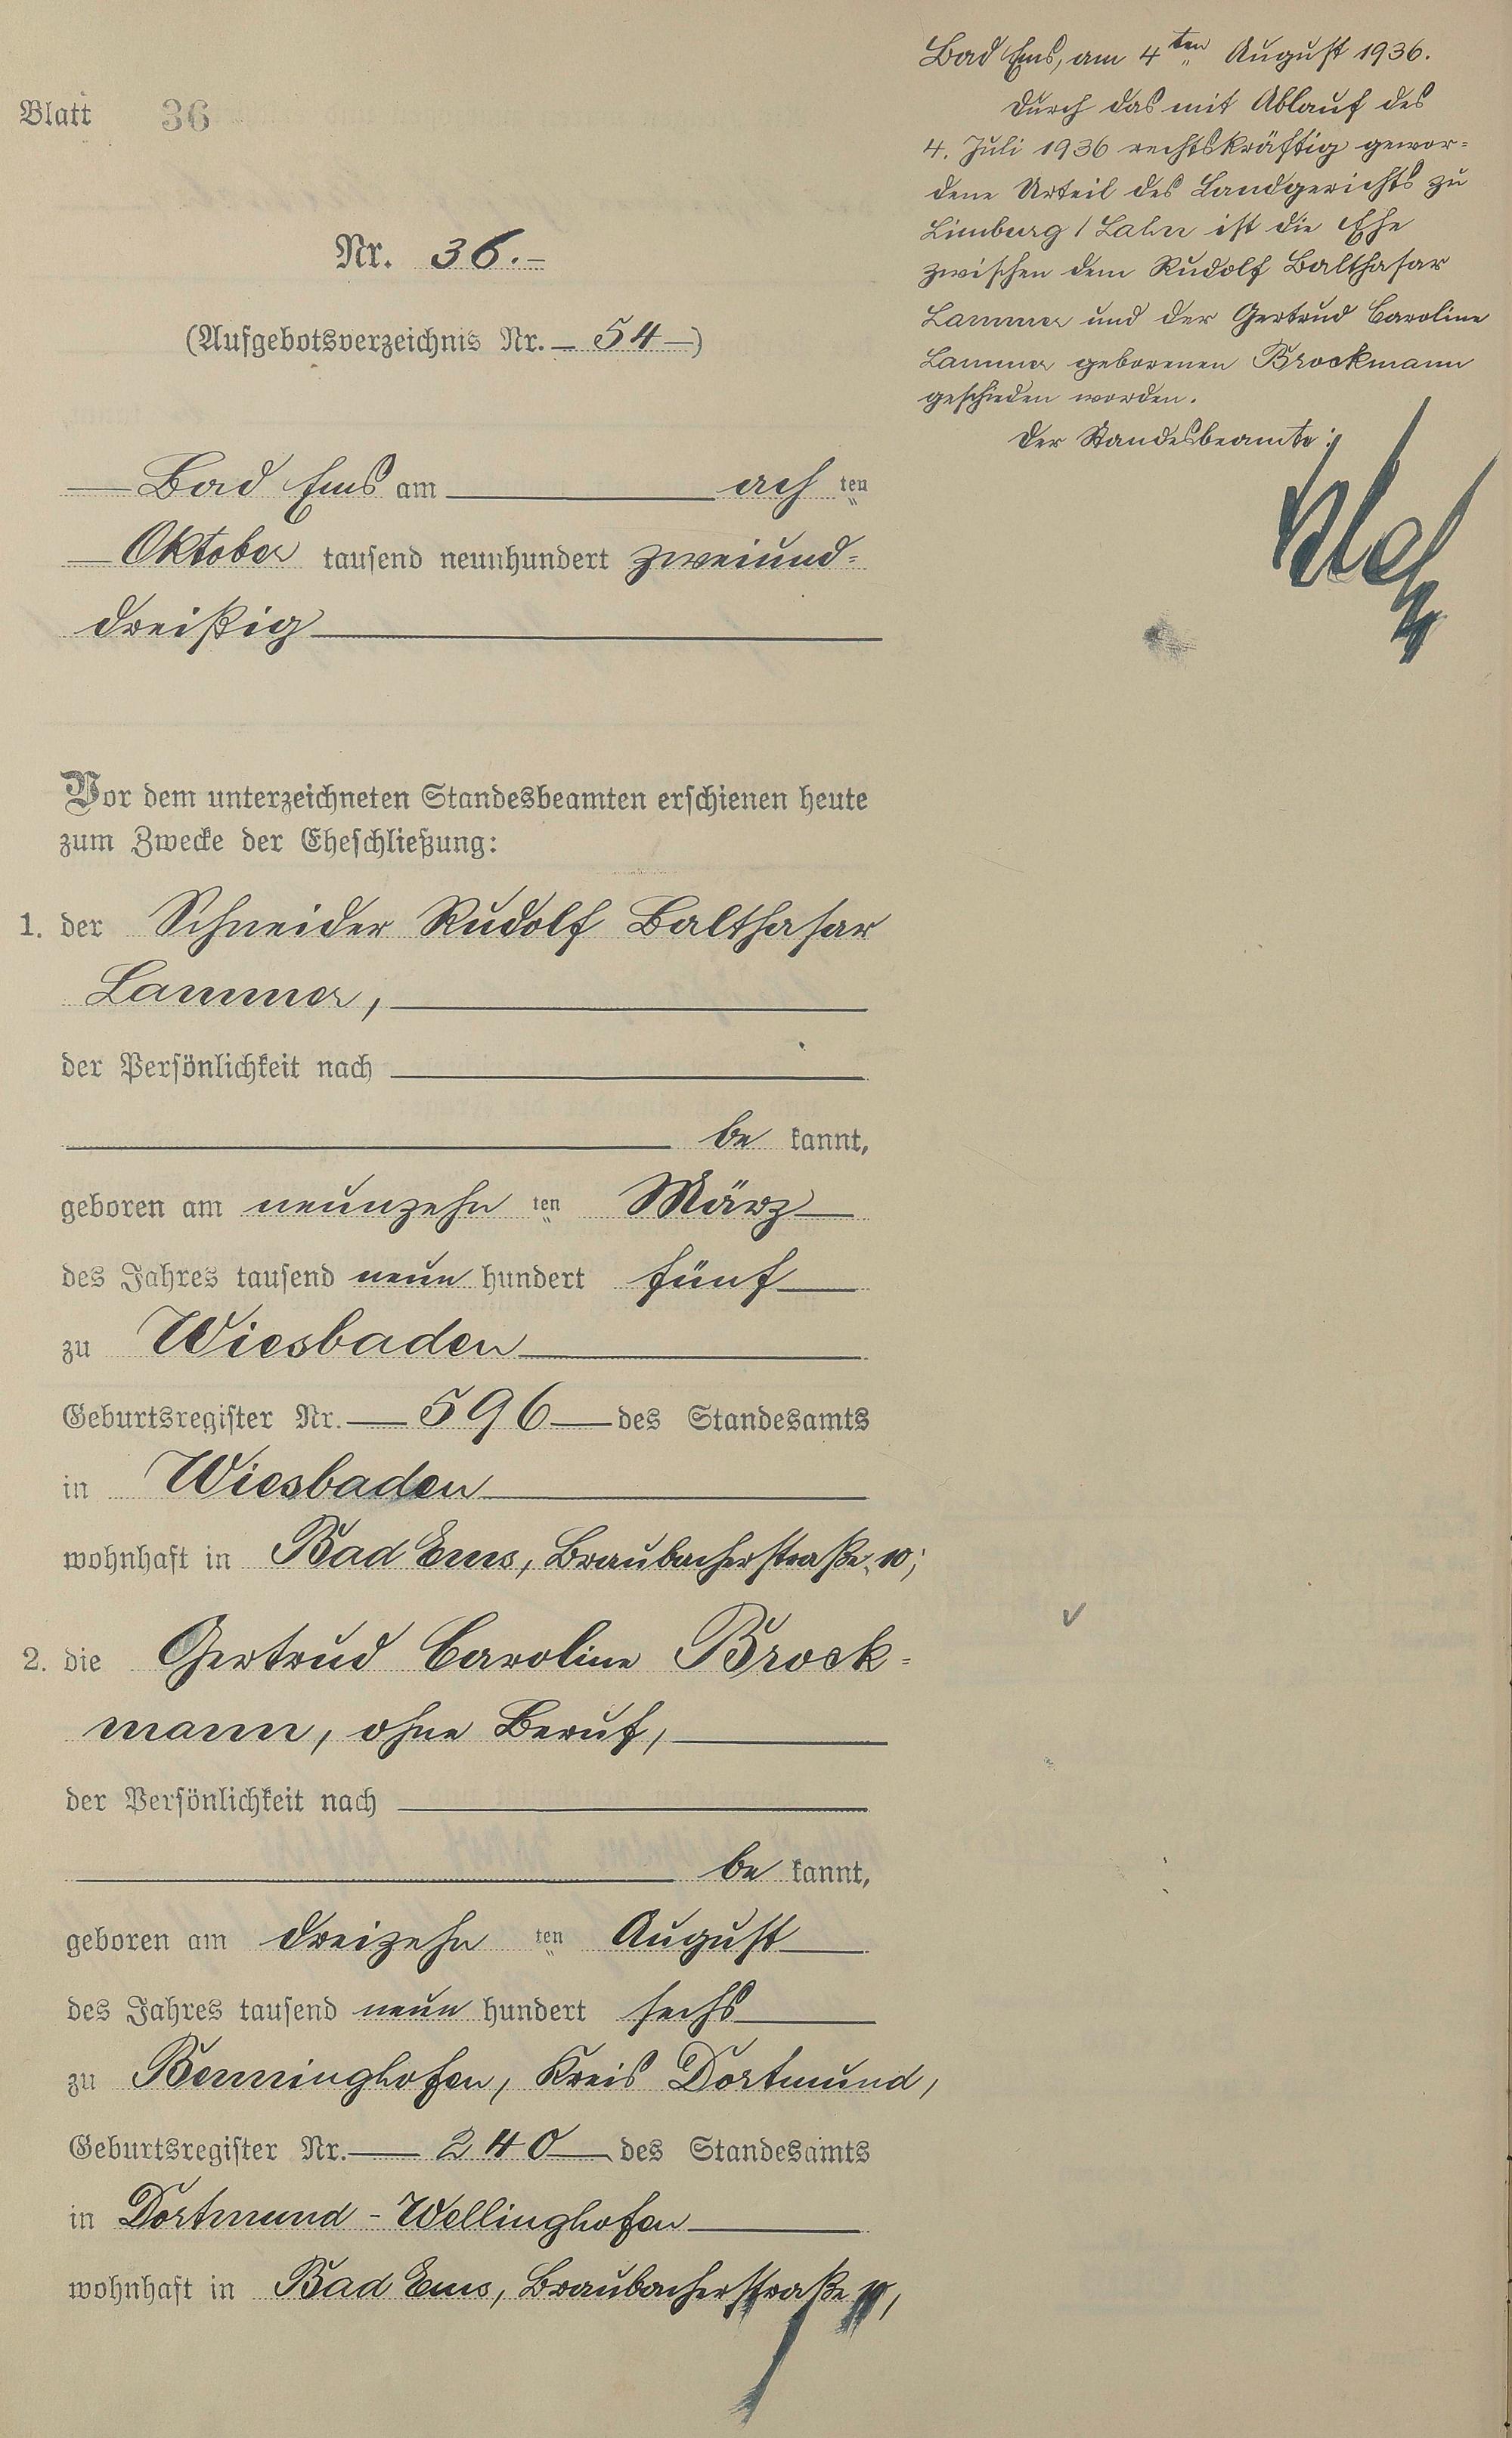 Blatt 36
Nr. 36.-
(Aufgebotsverzeichnis Nr. — 54 —)
— Bad Ems am — ach ten
— Oktober tausend neunhundert zweiund-
dreißig —
Vor dem unterzeichneten Standesbeamten erschienen heute
zum Zwecke der Eheschließung:
1. der Schneider Rudolf Balthasar
Lammer, —
der Persönlichkeit nach —
— be kannt,
geboren am neunzehn ten März —
des Jahres tausend neun hundert fünf —
zu Wiesbaden —
Geburtsregister Nr. — 596 — des Standesamts
in Wiesbaden —
wohnhaft in Bad Ems, Braubacherstraße, 10;
2. die Gertrud Caroline Brock-
mann, ohne Beruf, —
der Persönlichkeit nach —
— be kannt,
geboren am dreizehn ten August —
des Jahres tausend neun hundert sechs —
zu Benninghofen, Kreis Dortmund,
Geburtsregister Nr. — 240 — des Standesamts
in Dortmund - Wellinghofen —
wohnhaft in Bad Ems, Braubacherstraße 10,
Bad Ems, am 4ten August 1936.
Durch das mit Ablauf des
4. Juli 1936 rechtskräftig gewor-
dene Urteil des Landgerichts zu
Limburg / Lahn ist die Ehe
zwischen dem Rudolf Balthasar
Lammer und der Gertrud Caroline
Lammer geborenen Brockmann
geschieden worden.
Der Standesbeamte: